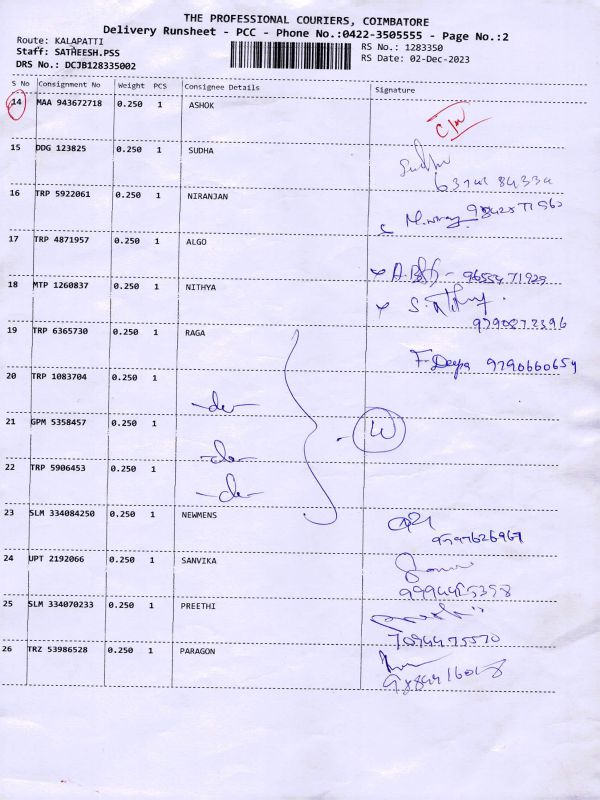 THE PROFESSIONAL COURIERS, COIMBATORE
Delivery Runsheet - PCC - Phone No.:0422-3505555 - Page No.:2
Route: KALAPATTI
RS No.: 1283350
Staff: SATHEESH.PSS
RS Date: 02-Dec-2023
DRS No.: DCJB128335002
S No Consignment No Weight PCS Consignee Details Signature
14 MAA 943672718 0.250 1 ASHOK
15 DDG 123825 0.250 1 SUDHA
16 TRP 5922061 0.250 1 NIRANJAN
17 TRP 4871957 0.250 1 ALGO
9655471929
18 MTP 1260837 0.250 1 NITHYA
9790872396
19 TRP 6365730 0.250 1 RAGA
F. Deepa 9790660654
20 TRP 1083704 0.250 1
-do-
21 GPM 5358457 0.250 1
-do-
22 TRP 5906453 0.250 1
-do-
23 SLM 334084250 0.250 1 NEWMENS
9597626967
24 UPT 2192066 0.250 1 SANVIKA
9994415358
25 SLM 334070233 0.250 1 PREETHI
7094475570
26 TRZ 53986528 0.250 1 PARAGON